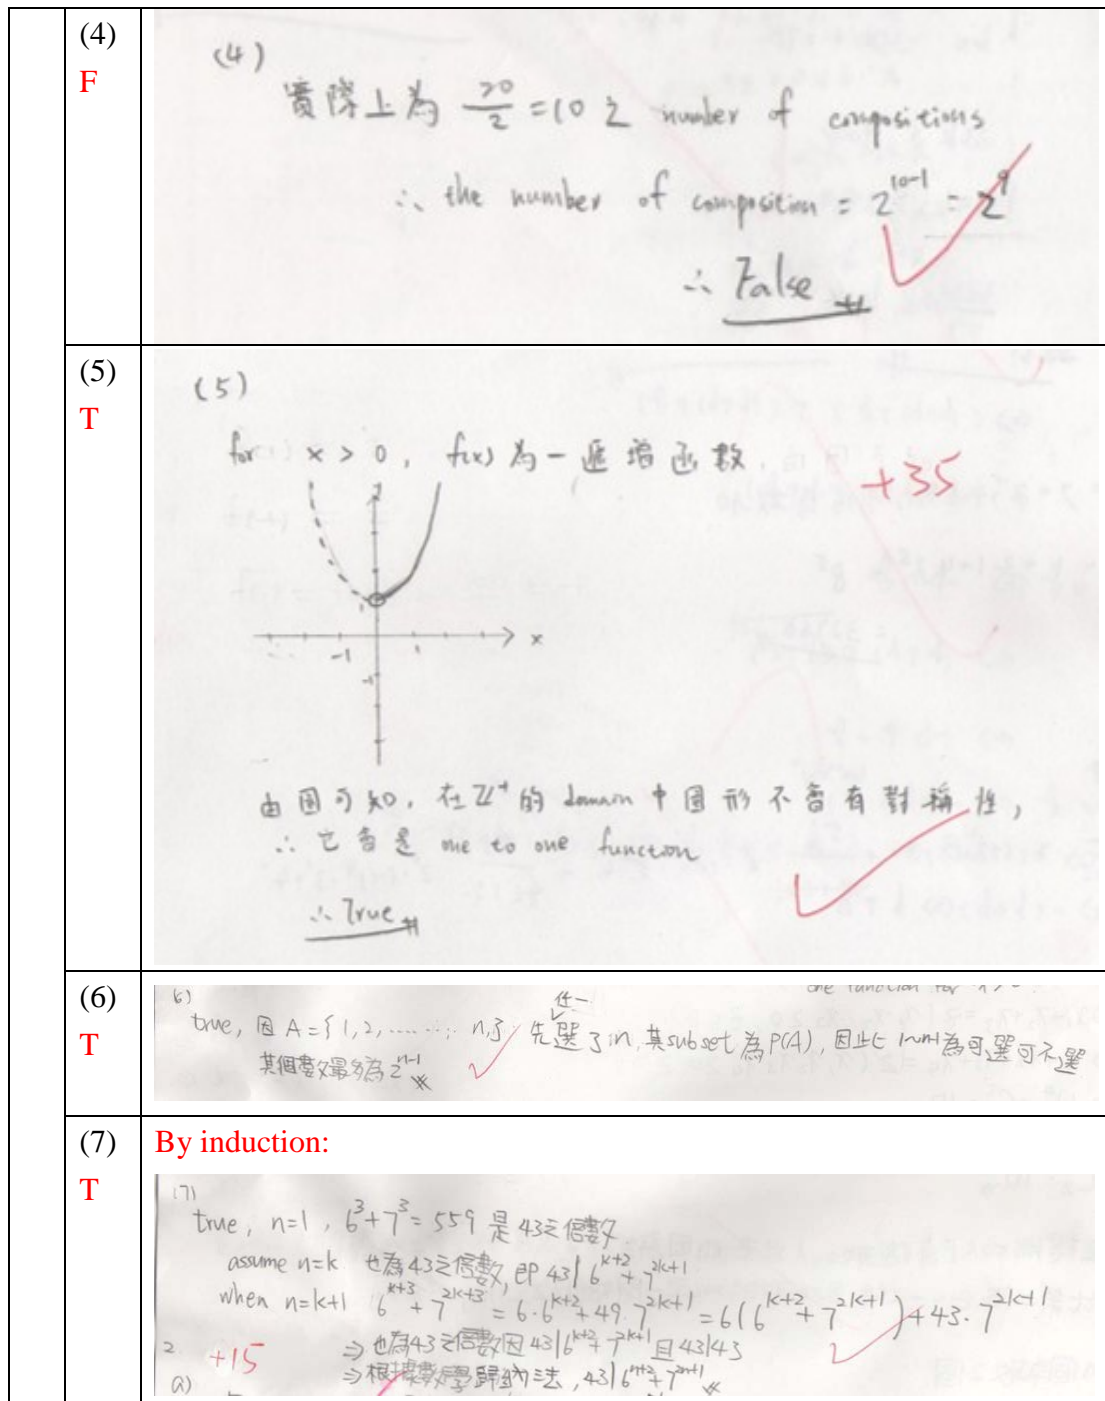 (4)
F
(4)
實際上為 20/2 = 10 之 number of compositions
∴ the number of composition = 2^{10-1} = 2^9
∴ False
(5)
T
(5)
for x > 0, f(x) 為一遞增函數
+35
1
x
-1
1
-1
由圖可知, 在 Z^+ 的 domain 中圖形不會有對稱性,
∴ 它會是 one to one function
∴ True
(6)
T
6)
one function for
任一
true, 因 A = {1, 2, ........, n} 先選了 n, 其 subset 為 P(A), 因此 1~n-1 為可選可不選
其個數最多為 2^{n-1}
(7)
T
By induction:
(7)
true, n=1, 6^3+7^3 = 559 是 43之倍數
assume n=k 也為43之倍數, 即 43 | 6^{k+2} + 7^{2k+1}
when n=k+1 6^{k+3} + 7^{2k+3} = 6·6^{k+2} + 49·7^{2k+1} = 6(6^{k+2} + 7^{2k+1}) + 43·7^{2k+1}
⇒ 也為43之倍數因 43 | 6^{k+2} + 7^{2k+1} 且 43|43
2.
+15
⇒ 根據數學歸納法, 43 | 6^{n+2} + 7^{2n+1}
a)